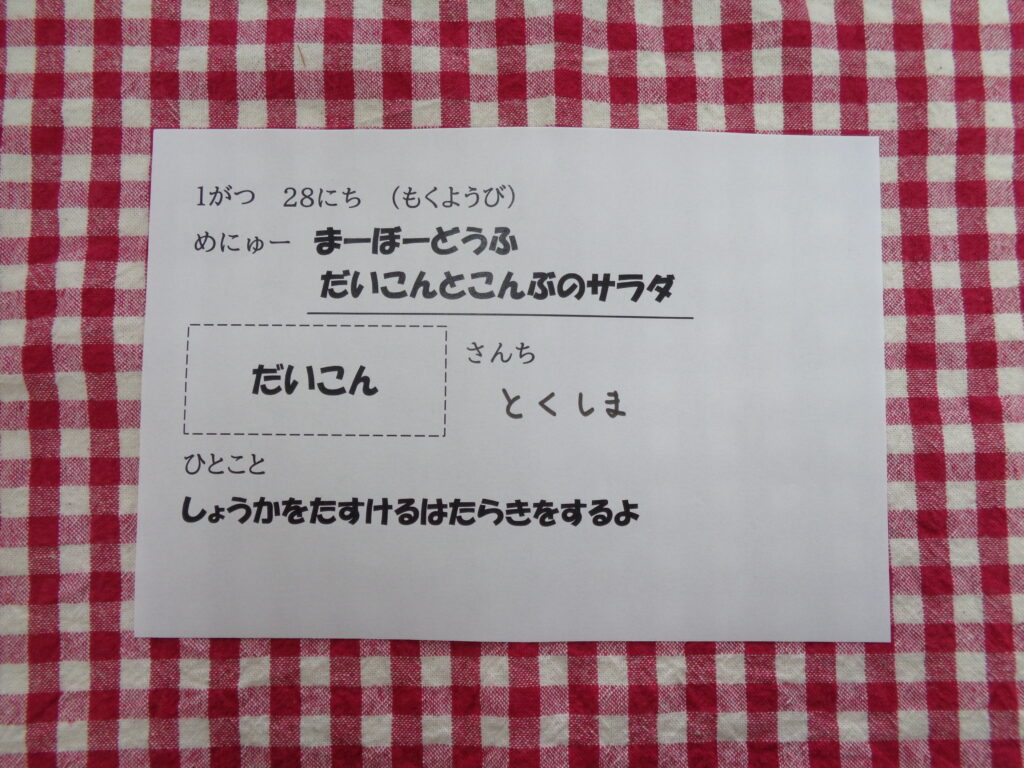 1がつ　28にち　(もくようび)
めにゅー　まーぼーどうふ
だいこんとこんぶのサラダ
だいこん
さんち
とくしま
ひとこと
しょうかをたすけるはたらきをするよ